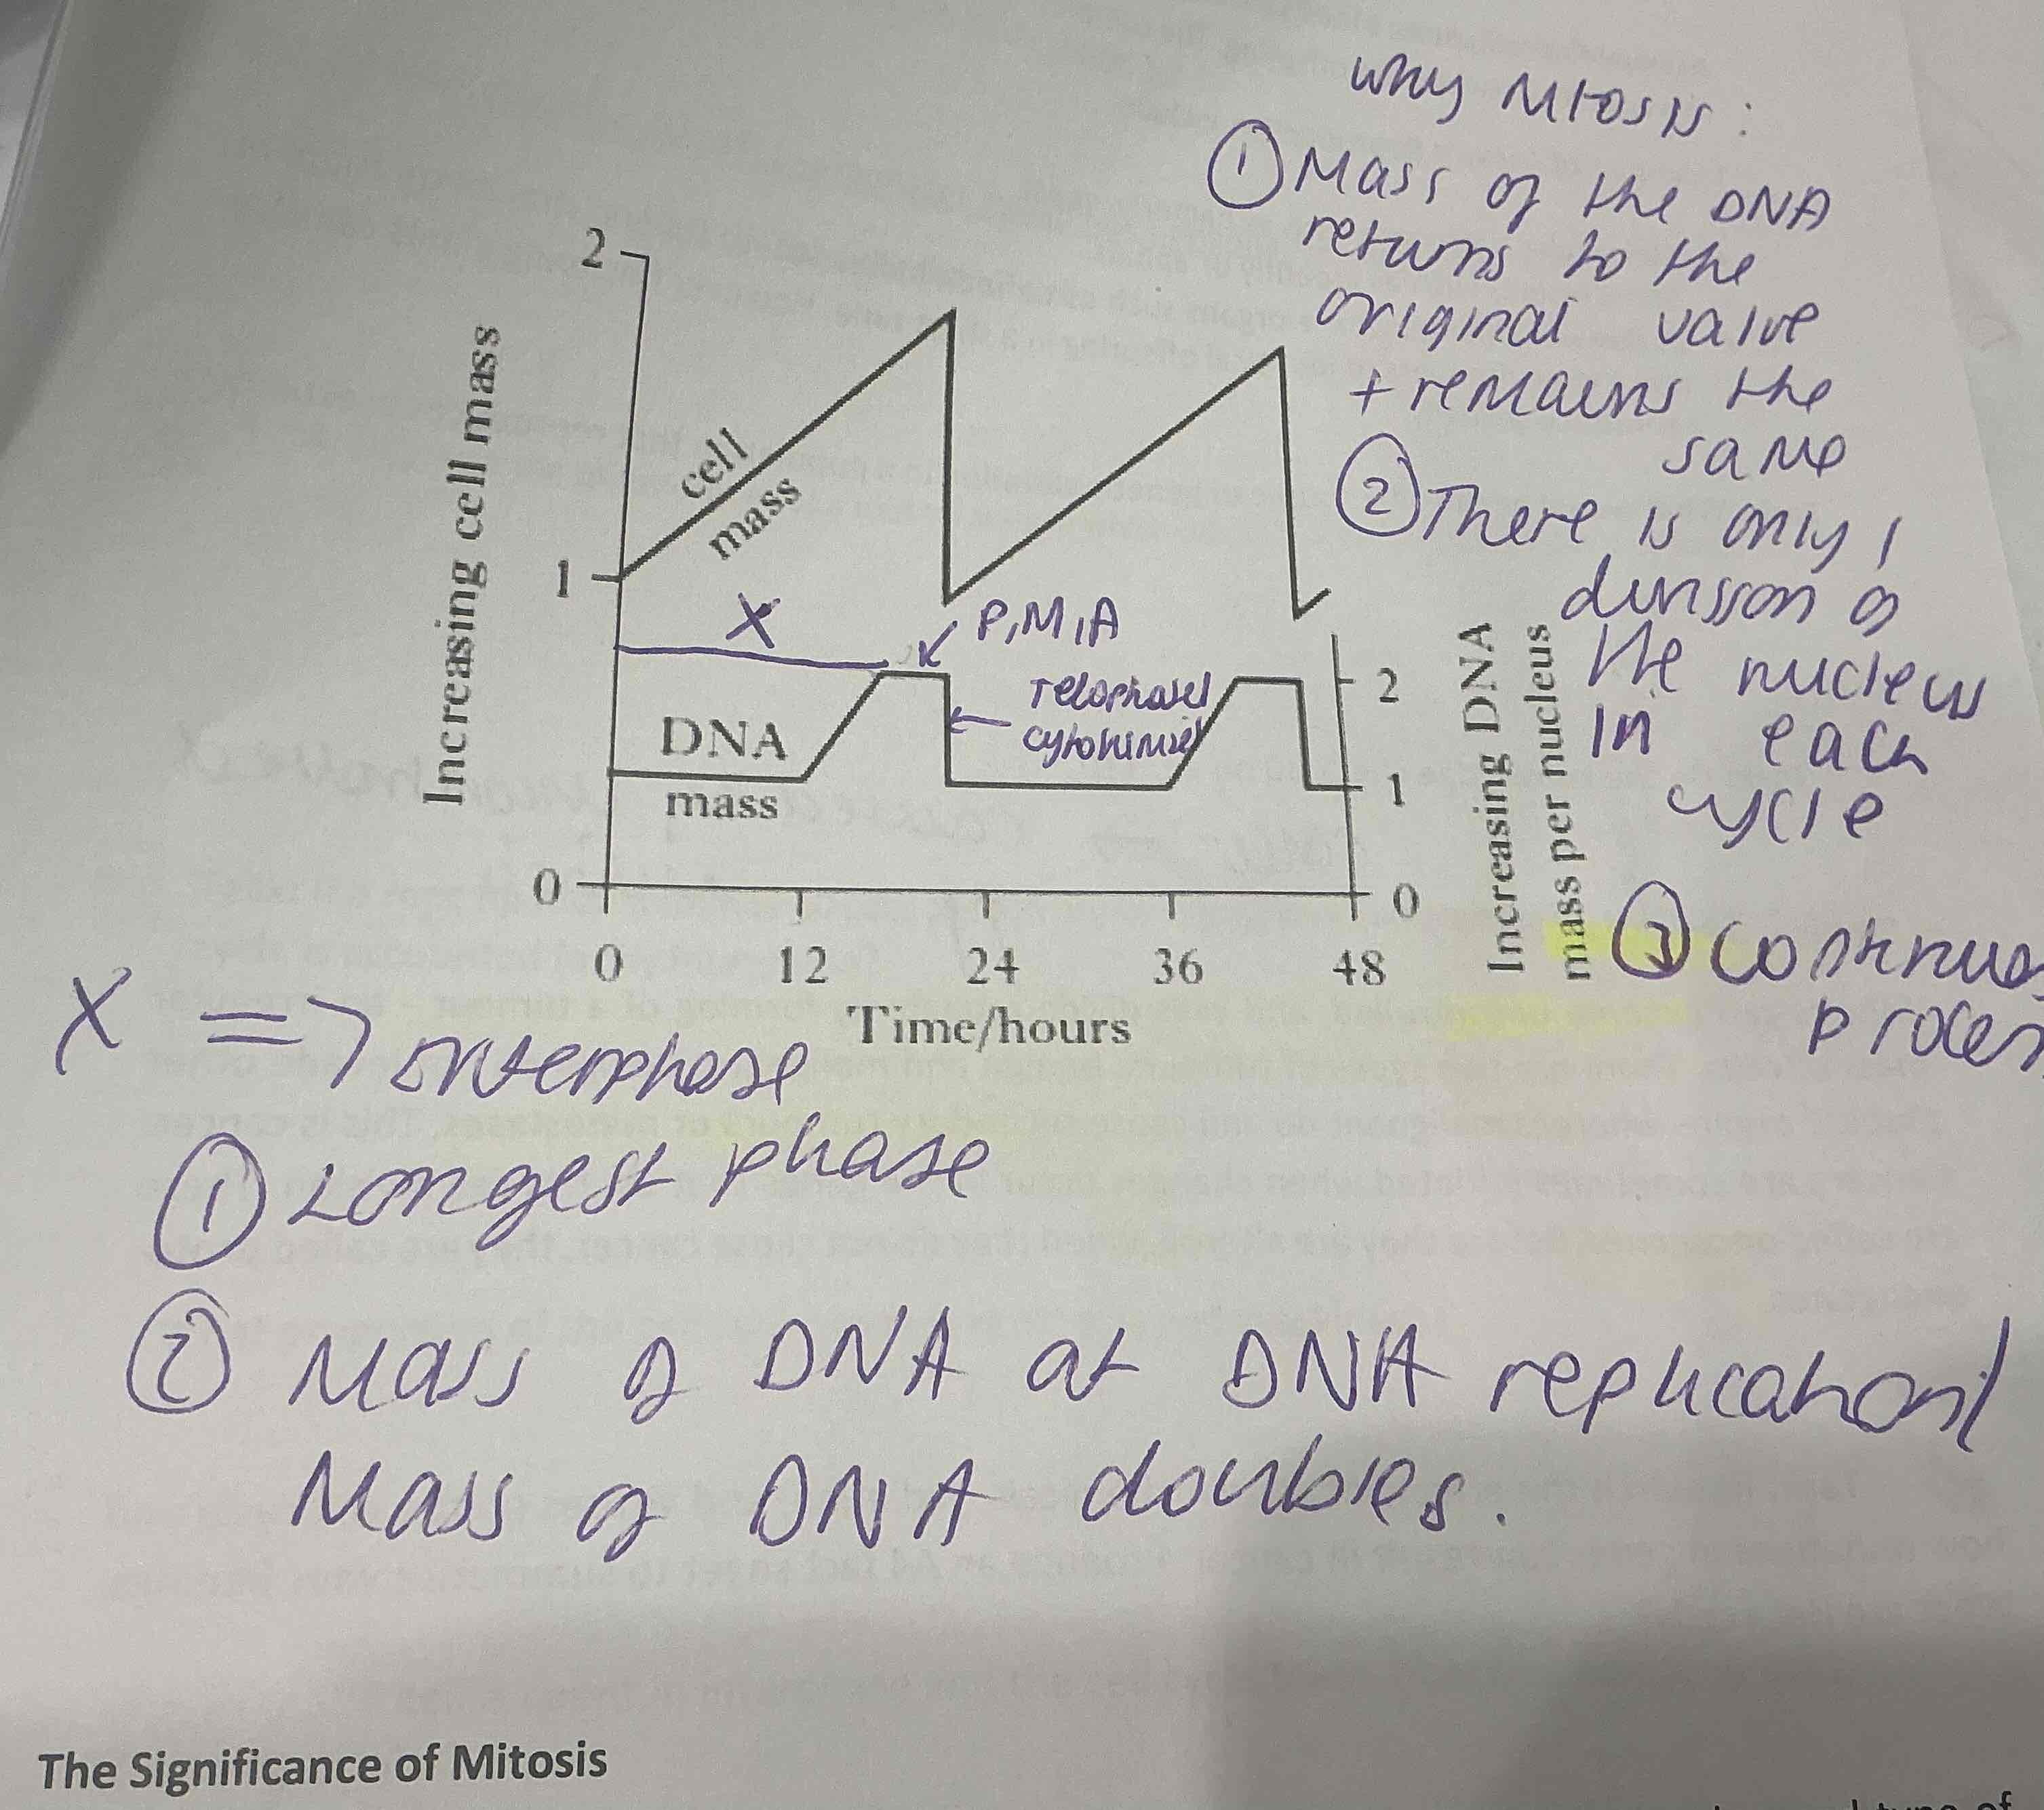 why Mitosis:
① Mass of the DNA
returns to the
original value
+ remains the
same
② There is only 1
division of
the nucleus
in each
cycle
③ Continuous
process
2
1
0
Increasing cell mass
cell
mass
X
P, M, A
Telophase/
cytokinesis
DNA
mass
2
1
0
Increasing DNA
mass per nucleus
0 12 24 36 48
Time/hours
X => interphase
① Longest phase
② Mass of DNA at DNA replication/
Mass of DNA doubles.
The Significance of Mitosis